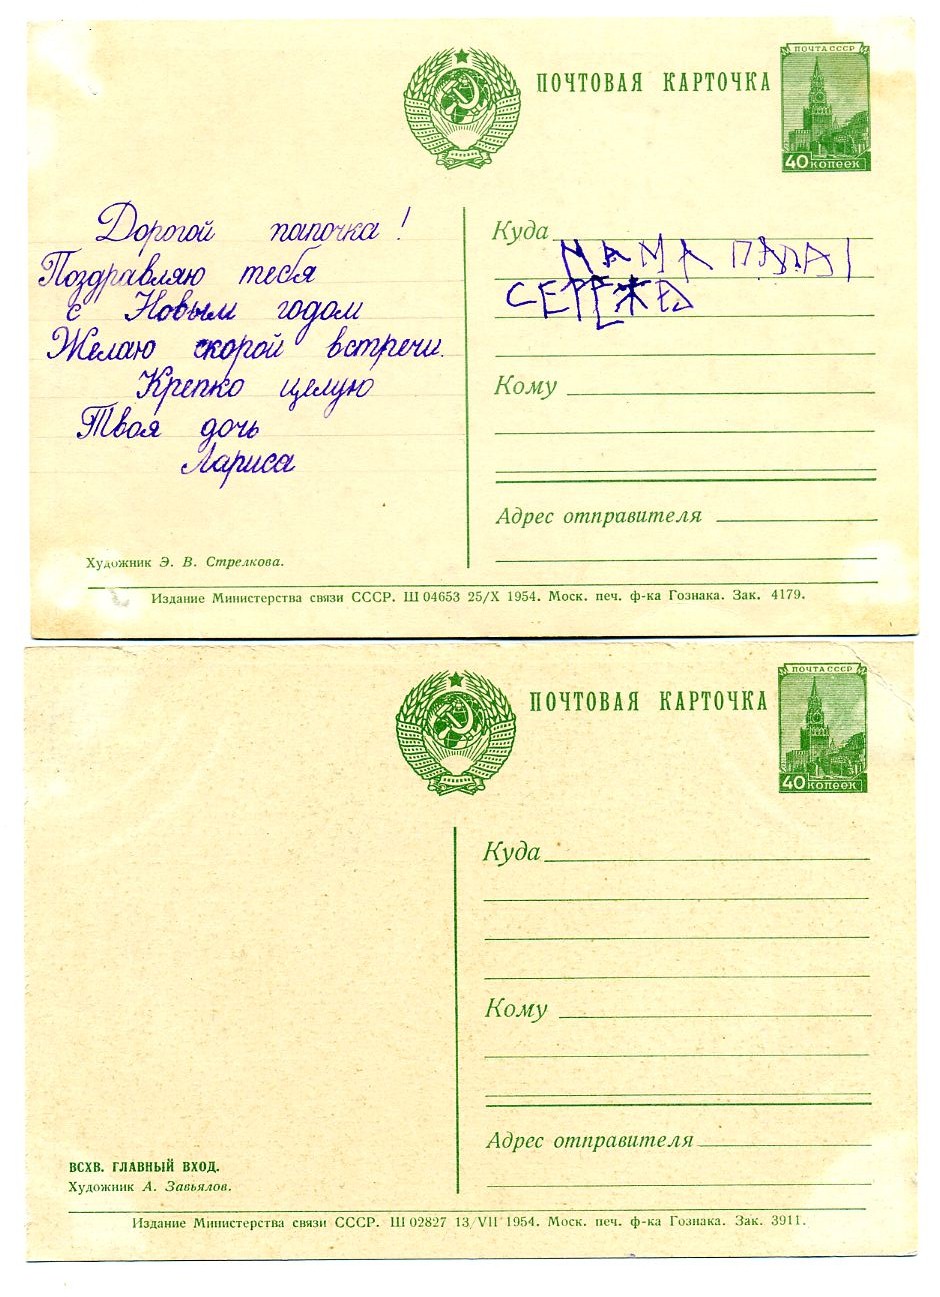 ПОЧТОВАЯ КАРТОЧКА
ПОЧТА СССР
40 копеек
Дорогой папочка!
Поздравляю тебя
с Новым годом
Желаю скорой встречи.
Крепко целую
Твоя дочь
Лариса
Куда
МАМА ПАПА
СЕРЕЖА
Кому
Адрес отправителя
Художник Э. В. Стрелкова.
Издание Министерства связи СССР. Ш 04653 25/X 1954. Моск. печ. ф-ка Гознака. Зак. 4179.
ПОЧТОВАЯ КАРТОЧКА
ПОЧТА СССР
40 копеек
Куда
Кому
Адрес отправителя
ВСХВ. ГЛАВНЫЙ ВХОД.
Художник А. Завьялов.
Издание Министерства связи СССР. Ш 02827 13/VII 1954. Моск. печ. ф-ка Гознака. Зак. 3911.